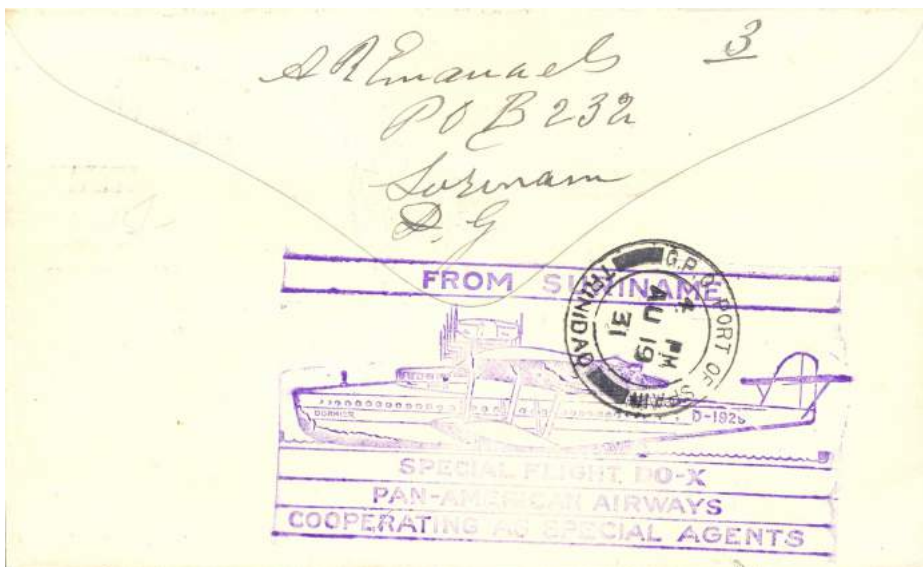 A R Emanuels 3
P O B 232
Surinam
D. G
FROM SURINAME
G.P.O. PORT OF SPAIN
TRINIDAD
4 PM
AU 19
31
DORNIER D-1929
SPECIAL FLIGHT DO-X
PAN-AMERICAN AIRWAYS
COOPERATING AS SPECIAL AGENTS